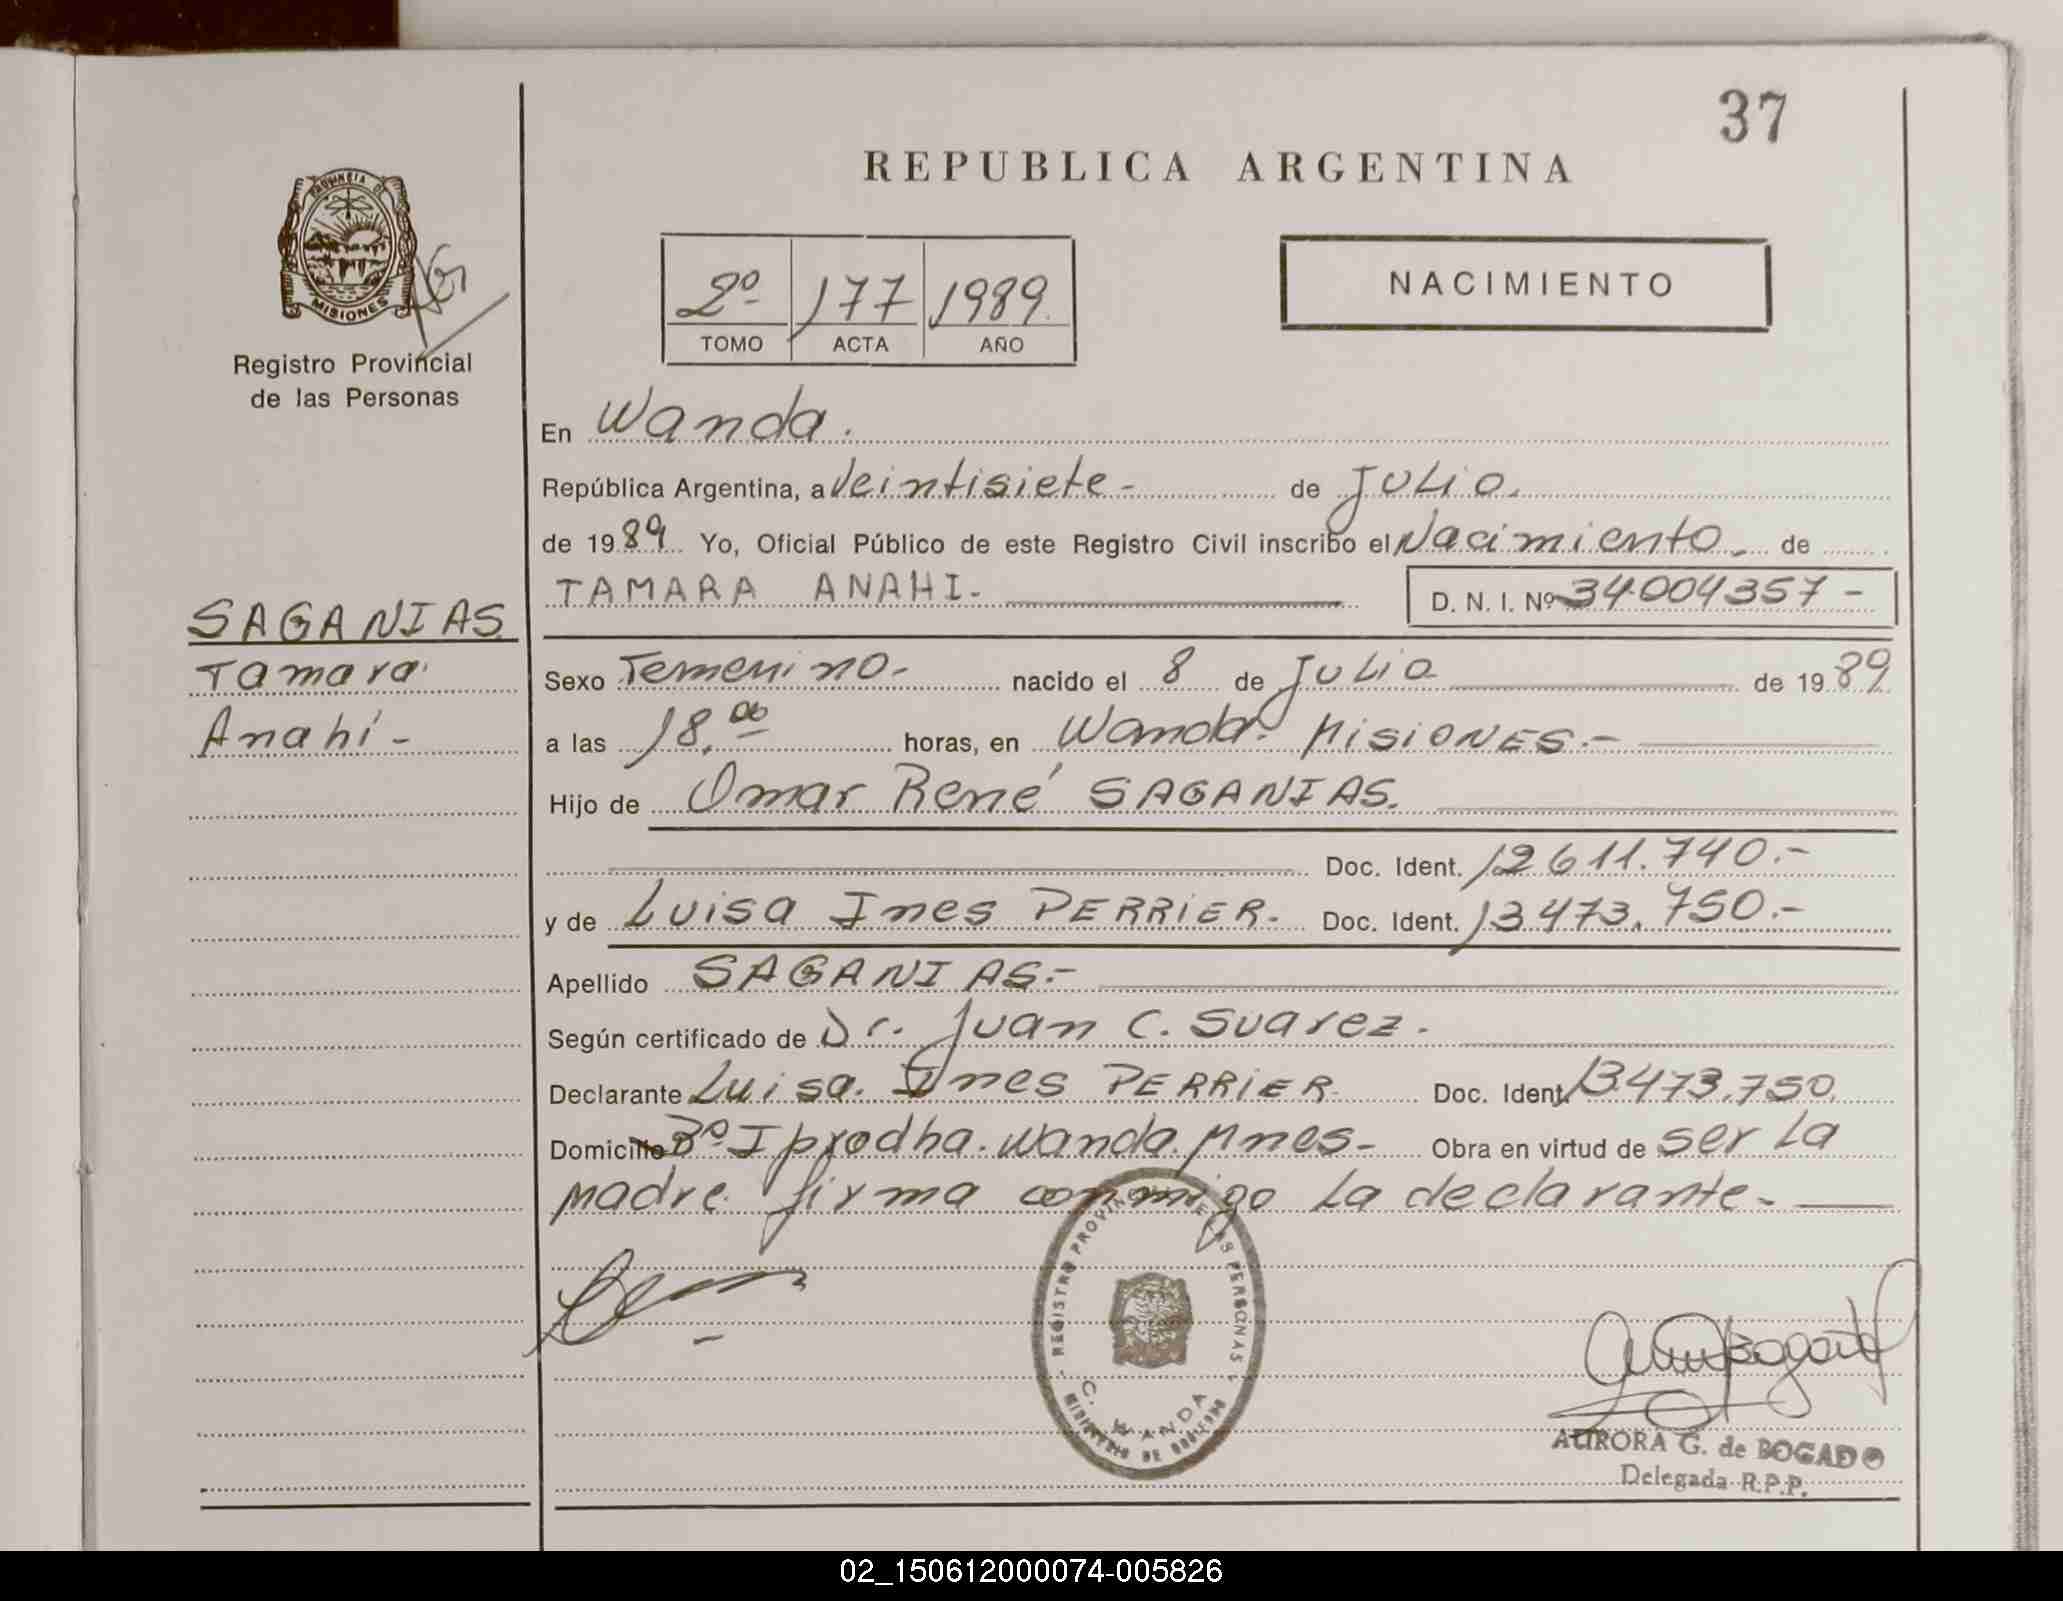 37
REPUBLICA ARGENTINA
PROVINCIA DE
MISIONES
Registro Provincial
de las Personas
2º 177 1989.
TOMO ACTA AÑO
NACIMIENTO
En Wanda.
República Argentina, a Veintisiete - de JULIO.
de 1989 Yo, Oficial Público de este Registro Civil inscribo el Nacimiento - de
TAMARA ANAHI. D. N. I. Nº 34.004357 -
SAGANIAS
Tamara
Anahí -
Sexo Femenino. - nacido el 8 de JULIO de 1989
a las 18.00 horas, en Wanda. MISIONES. -
Hijo de Omar René SAGANIAS.
Doc. Ident. 12611.740.-
y de Luisa Ines PERRIER. Doc. Ident. 13473.750.-
Apellido SAGANIAS.-
Según certificado de Dr. Juan C. Suarez.
Declarante Luisa. Ines PERRIER. Doc. Ident. 13.473.750.
Domicilio Bº Iprodha. Wanda. Mnes- Obra en virtud de ser la
madre. firma conmigo la declarante.
REGISTRO PROVINCIAL DE LAS PERSONAS
C. WANDA
MINISTERIO DE GOBIERNO
AURORA G. de BOGADO
Delegada R.P.P.
02_150612000074-005826